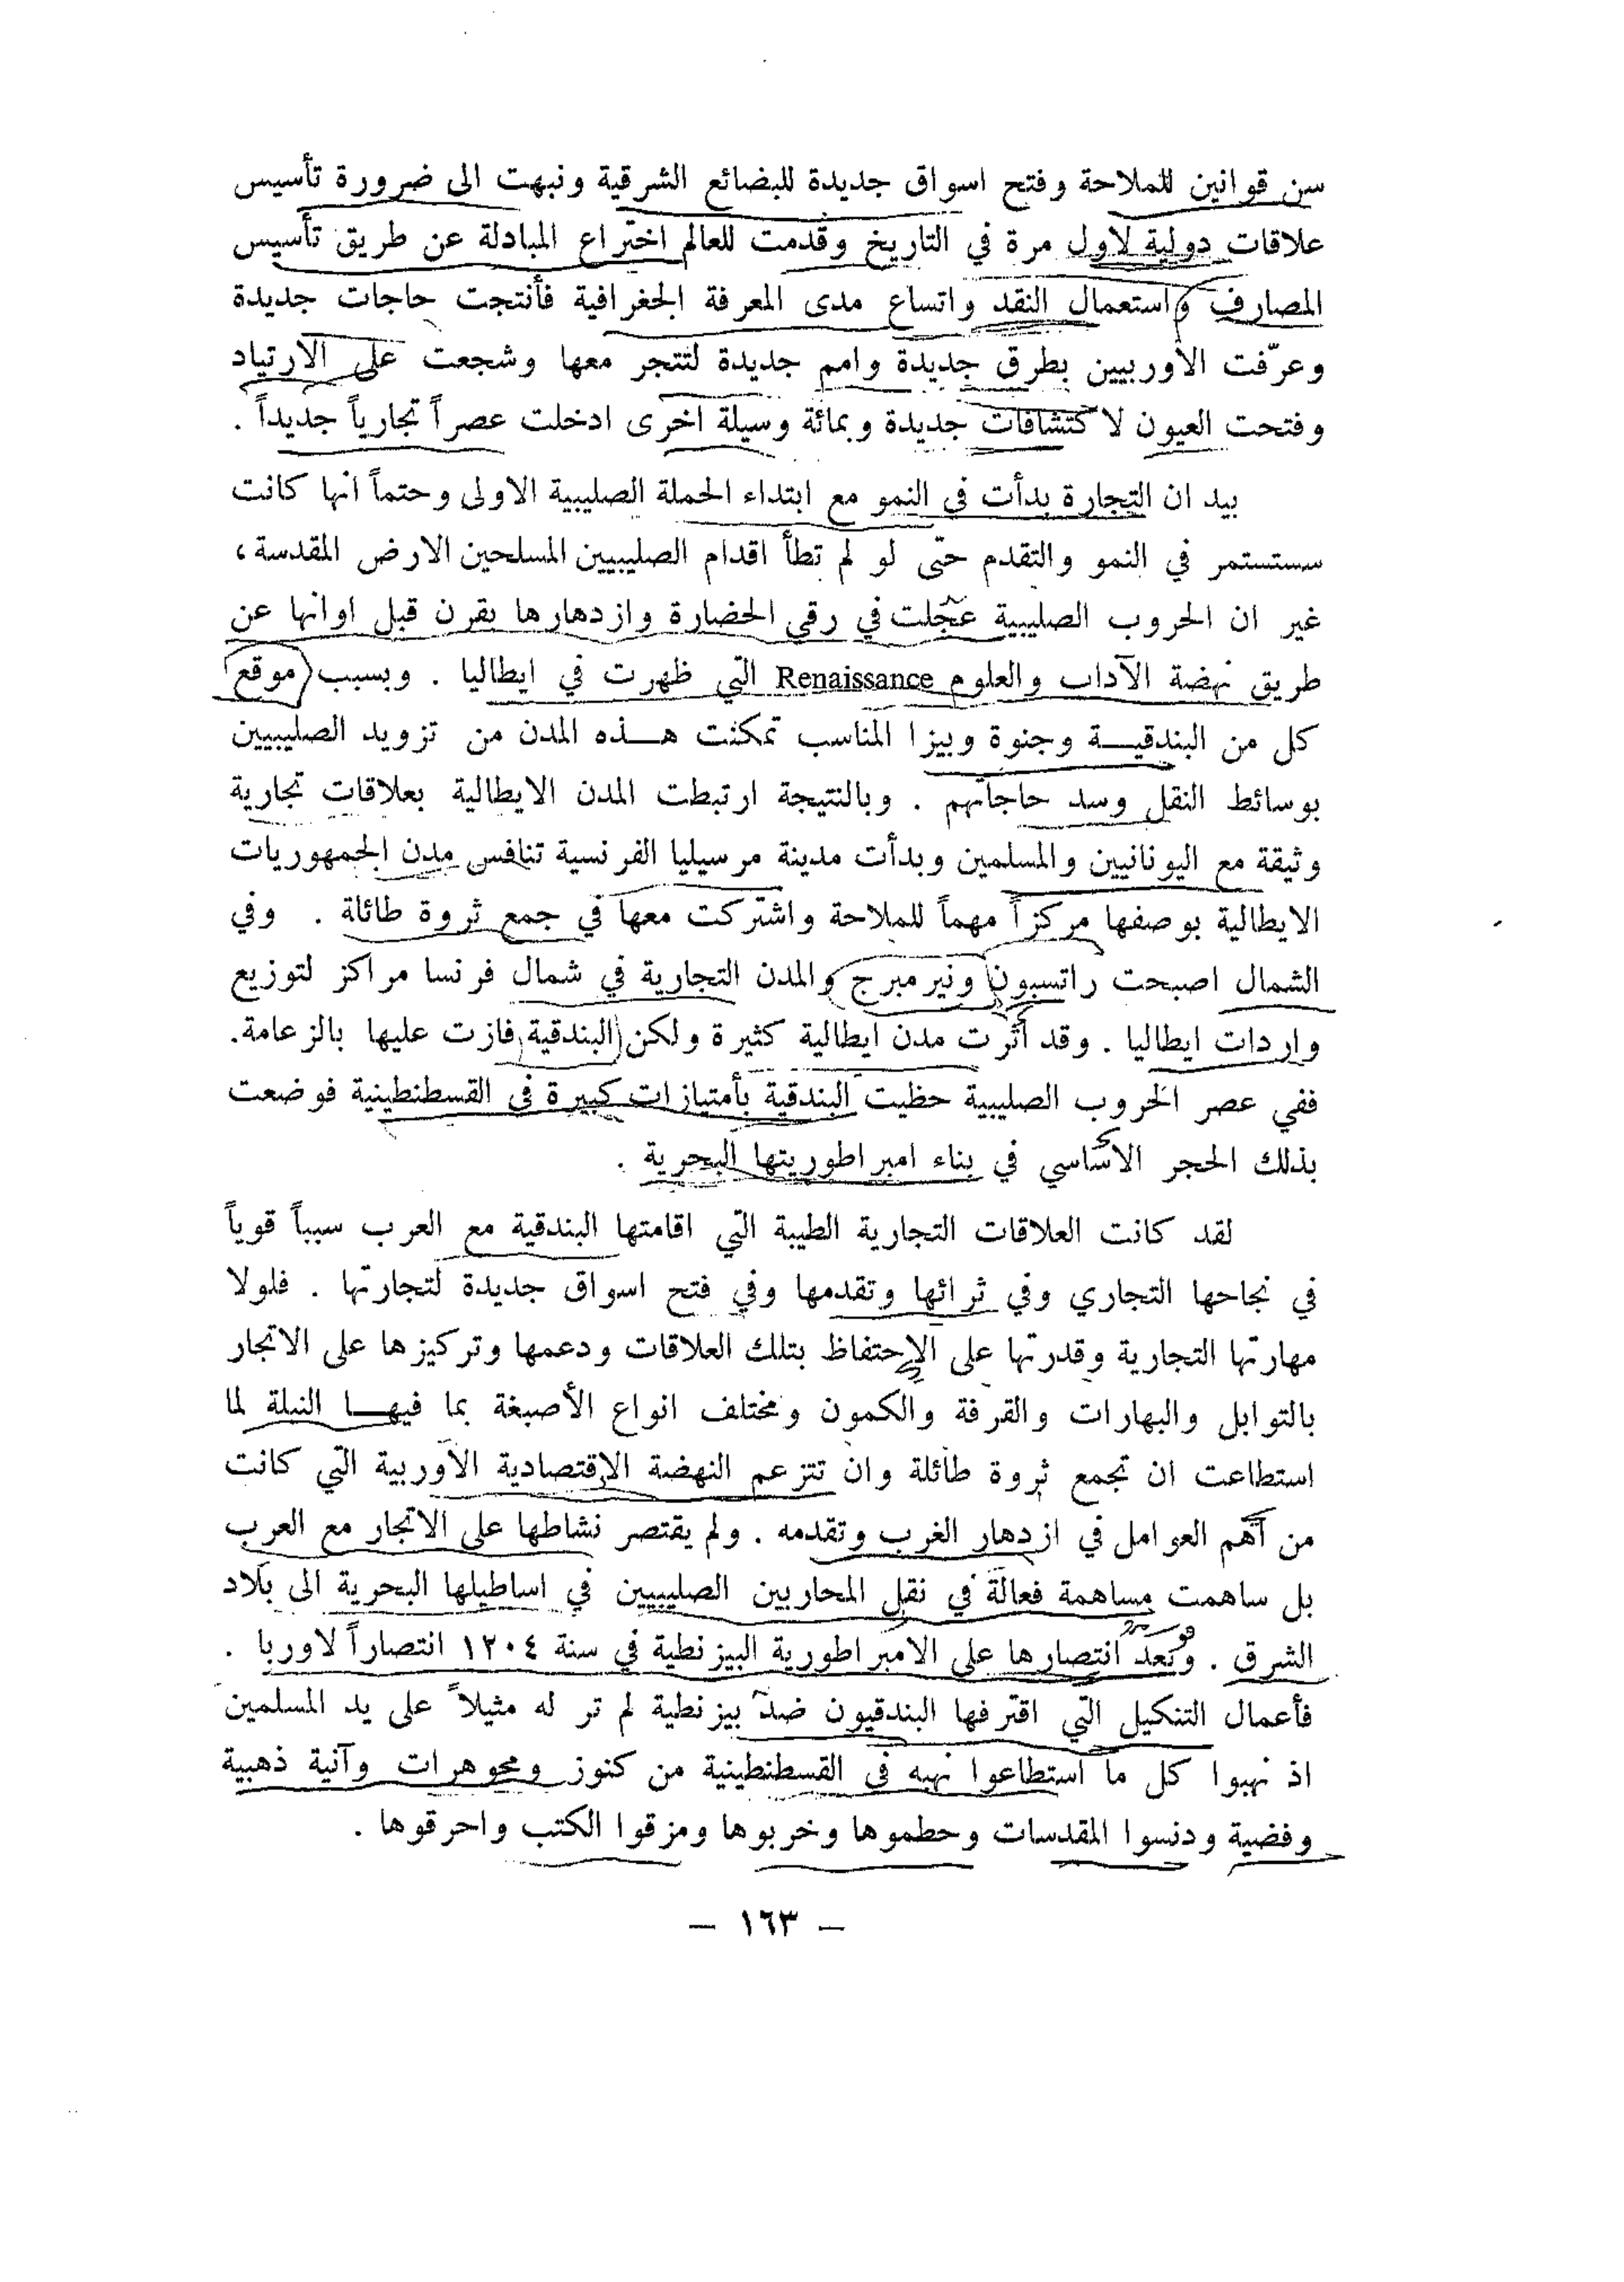 سن قوانين للملاحة وفتح اسواق جديدة للبضائع الشرقية ونبهت الى ضرورة تأسيس
علاقات دولية لاول مرة في التاريخ وقدمت للعالم اختراع المبادلة عن طريق تأسيس
المصارف واستعمال النقد واتساع مدى المعرفة الجغرافية فأنتجت حاجات جديدة
وعرّفت الاوربيين بطرق جديدة وامم جديدة لتتجر معها وشجعت على الارتياد
وفتحت العيون لاكتشافات جديدة وبمائة وسيلة اخرى ادخلت عصراً تجارياً جديداً .
بيد ان التجارة بدأت في النمو مع ابتداء الحملة الصليبية الاولى وحتماً انها كانت
ستستمر في النمو والتقدم حتى لو لم تطأ اقدام الصليبيين المسلحين الارض المقدسة ،
غير ان الحروب الصليبية عجّلت في رقي الحضارة وازدهارها بقرن قبل اوانها عن
طريق نهضة الآداب والعلوم Renaissance التي ظهرت في ايطاليا . وبسبب موقع
كل من البندقيـــة وجنوة وبيزا المناسب تمكنت هـــذه المدن من تزويد الصليبيين
بوسائط النقل وسد حاجاتهم . وبالنتيجة ارتبطت المدن الايطالية بعلاقات تجارية
وثيقة مع اليونانيين والمسلمين وبدأت مدينة مرسيليا الفرنسية تنافس مدن الجمهوريات
الايطالية بوصفها مركزاً مهماً للملاحة واشتركت معها في جمع ثروة طائلة . وفي
الشمال اصبحت راتسبون ونيرمبرج والمدن التجارية في شمال فرنسا مراكز لتوزيع
واردات ايطاليا . وقد أثرت مدن ايطالية كثيرة ولكن البندقية فازت عليها بالزعامة.
ففي عصر الحروب الصليبية حظيت البندقية بأمتيازات كبيرة في القسطنطينية فوضعت
بذلك الحجر الاساسي في بناء امبراطوريتها البحرية .
لقد كانت العلاقات التجارية الطيبة التي اقامتها البندقية مع العرب سبباً قوياً
في نجاحها التجاري وفي ثرائها وتقدمها وفي فتح اسواق جديدة لتجارتها . فلولا
مهارتها التجارية وقدرتها على الإحتفاظ بتلك العلاقات ودعمها وتركيزها على الاتجار
بالتوابل والبهارات والقرفة والكمون ومختلف انواع الأصبغة بما فيهـــا النيلة لما
استطاعت ان تجمع ثروة طائلة وان تتزعم النهضة الإقتصادية الاوربية التي كانت
من أهم العوامل في ازدهار الغرب وتقدمه . ولم يقتصر نشاطها على الاتجار مع العرب
بل ساهمت مساهمة فعالة في نقل المحاربين الصليبيين في اساطيلها البحرية الى بلاد
الشرق . وتعد انتصارها على الامبراطورية البيزنطية في سنة ١٢٠٤ انتصاراً لاوربا .
فأعمال التنكيل التي اقترفها البندقيون ضد بيزنطية لم تر له مثيلاً على يد المسلمين
اذ نهبوا كل ما استطاعوا نهبه في القسطنطينية من كنوز ومجوهرات وآنية ذهبية
وفضية ودنسوا المقدسات وحطموها وخربوها ومزقوا الكتب واحرقوها .
— ١٦٣ —